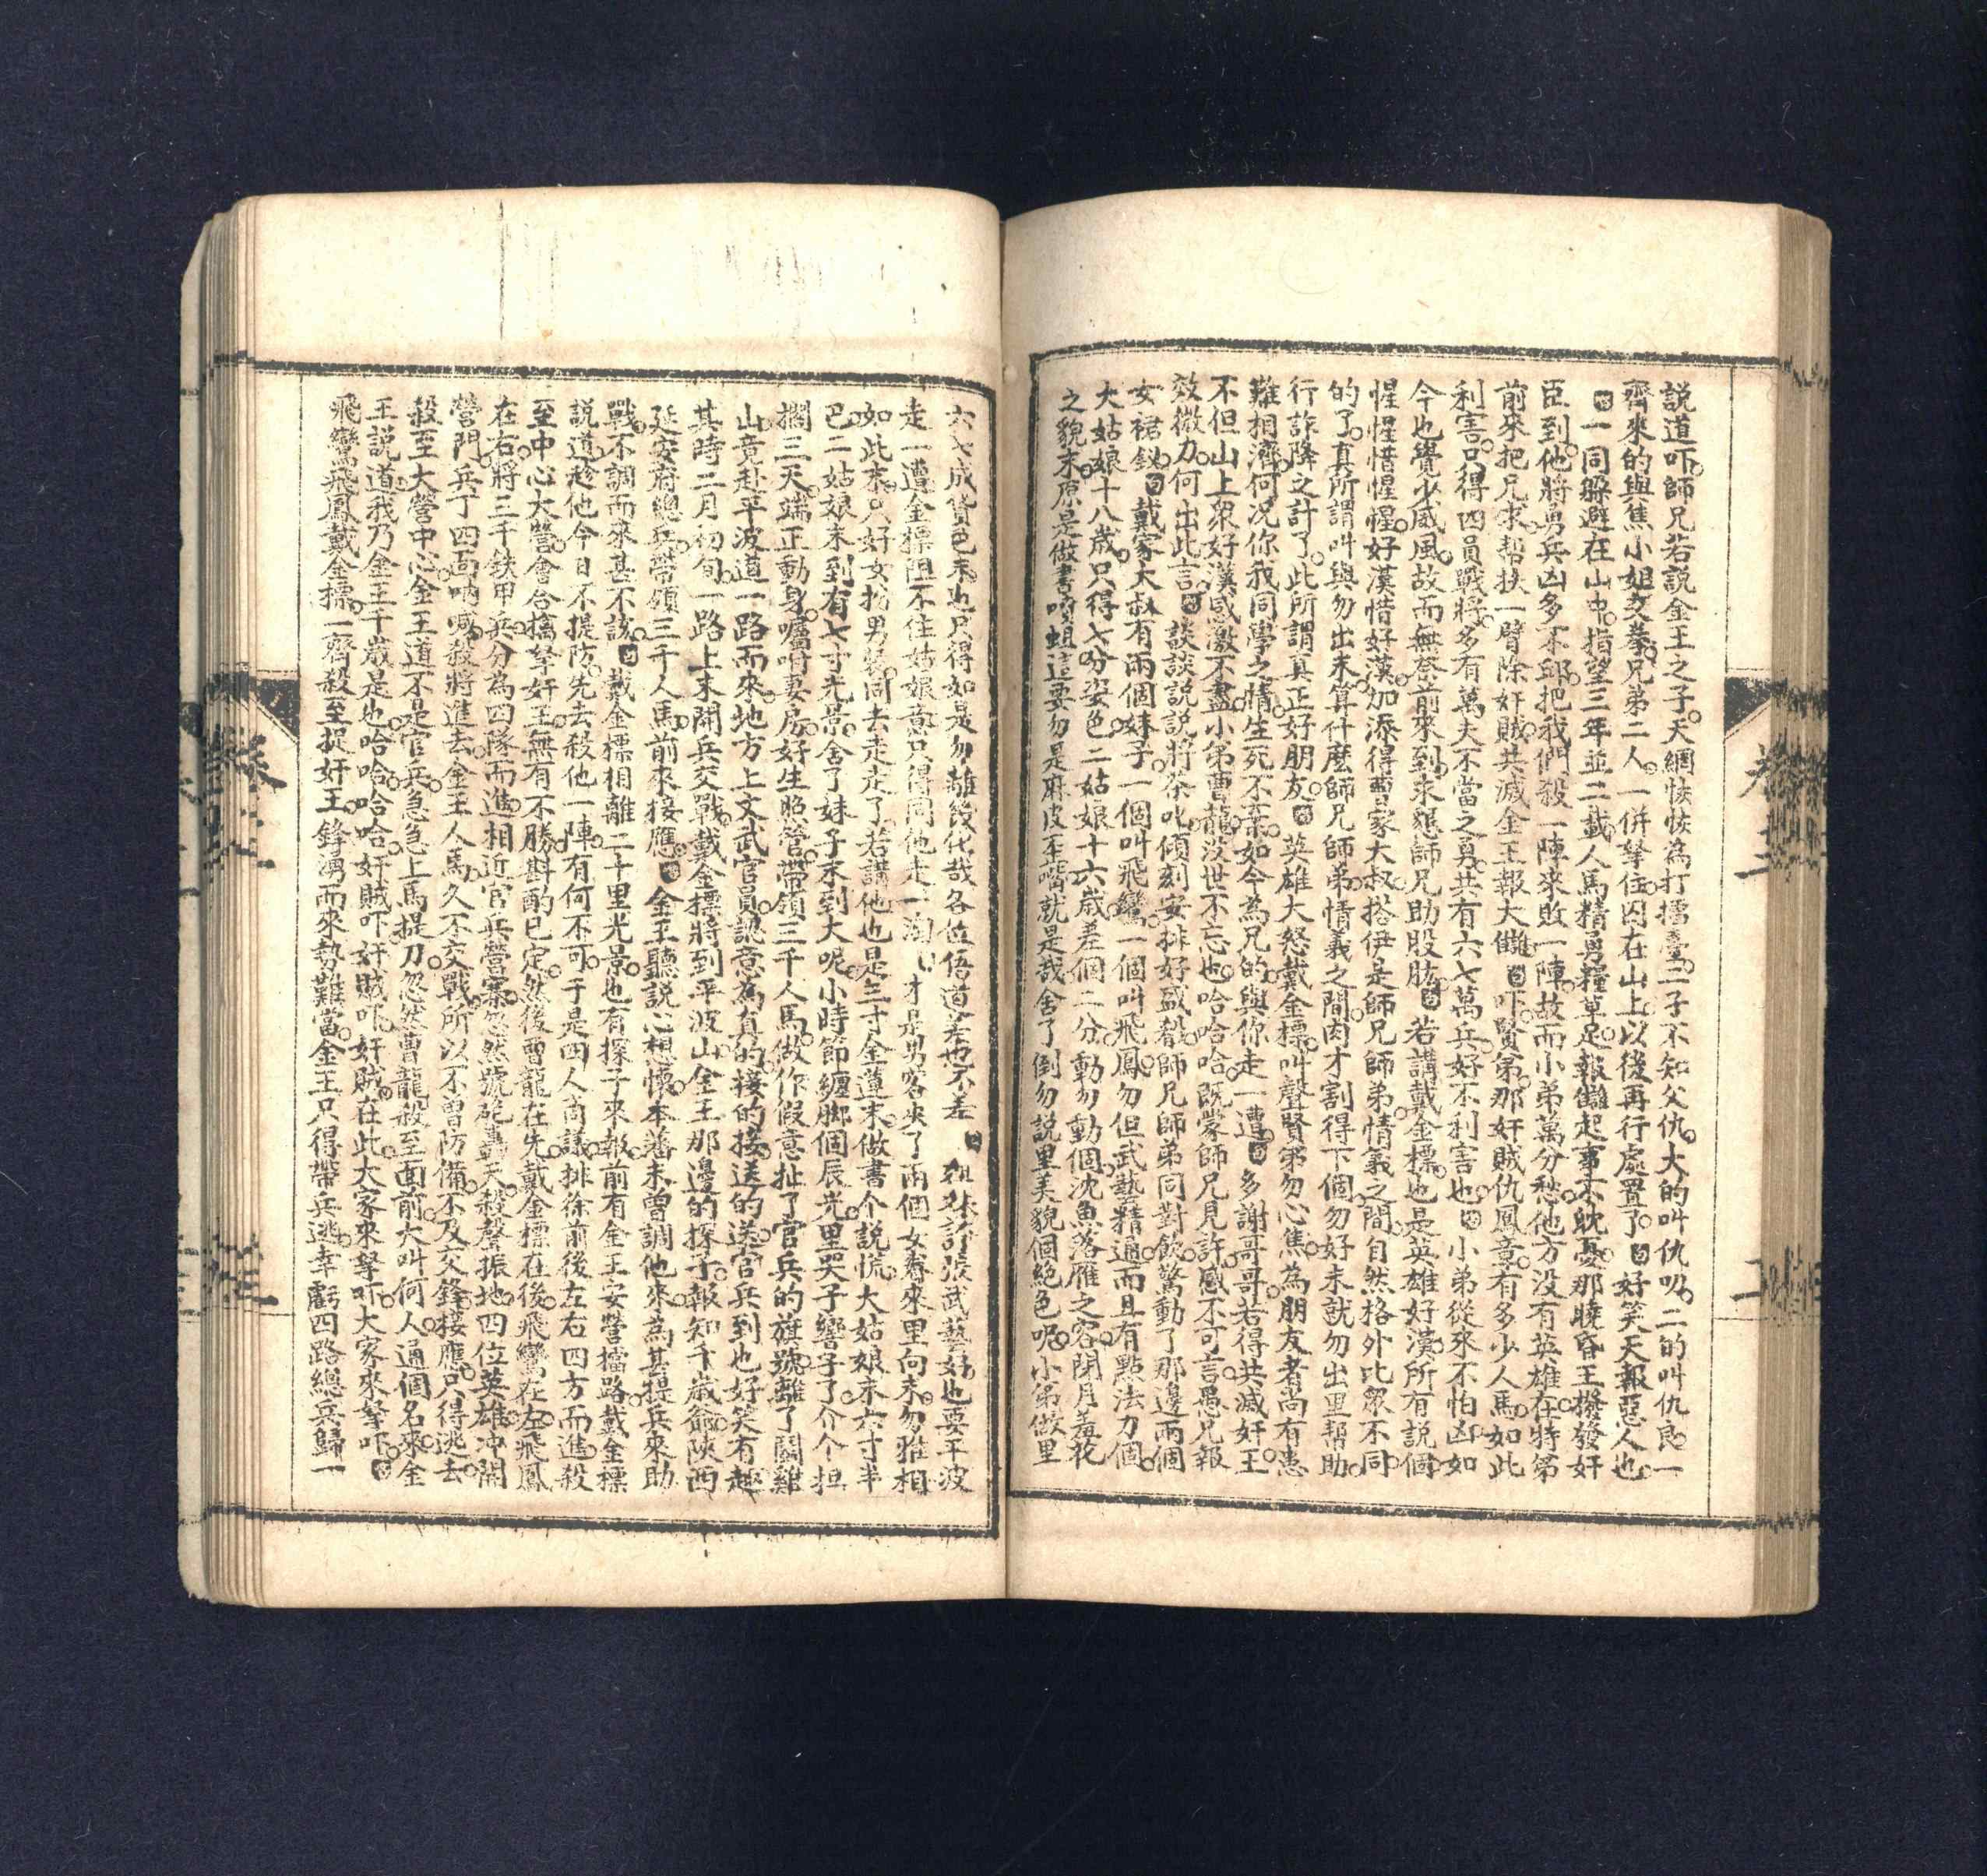 説道吓師兄若説金王之子天網恢恢為打擂臺二子不知父仇大的叫仇叨二的叫仇良一
齊來的與焦小姐交拳兄弟二人一併拏住囚在山上以後再行處置了白好笑天報惡人也
一同躱避在山中指望三年並二載人馬精勇糧草足報讎起事不躭憂那曉昏王撥發奸
臣到他將勇兵凶多不卹把我們殺一陣來敗一陣故而小弟萬分愁他方没有英雄在特第
前來把兄求帮扶一臂除奸賊共滅金王報大讎白吓賢弟那奸賊仇鳳章有多少人馬如此
利害只得四員戰將多有萬夫不當之勇共有六七萬兵好不利害也白小弟從來不怕凶如
今也覺少威風故而無奈前來到求懇師兄助股肱白若講戴金標也是英雄好漢所有説個
惺惺惜惺惺好漢惜好漢加添得曹家大叔搭伊是師兄師弟情義之間自然格外比衆不同
的了真所謂叫與勿出末算什麽師兄師弟情義之間肉才割得下個勿好末就勿出里幫助
行詐降之計了此所謂真正好朋友白英雄大怒戴金標叫聲賢弟勿心焦為朋友者尚有患
難相濟何况你我同學之情生死不棄如今為兄的與你走一遭白多謝哥哥若得共滅奸王
不但山上衆好漢感激不盡小弟曹龍没世不忘也哈哈哈既蒙師兄見許感不可言愚兄報
效微力何出此言白談談説説將茶叱傾刻安排好盛殽師兄師弟同對飲驚動了那邊兩個
女裙釵白戴家大叔有兩個妹子一個叫飛鸞一個叫飛鳳勿但武藝精通而且有點法力個
大姑娘十八歲只得七吩姿色二姑娘十六歲差個二分動勿動個沈魚落雁之容閉月羞花
之貌末原是做書噴蛆這要勿是麻皮歪嘴就是哉舍了倒勿説里美貌個絶色呢小弟做里
六七成貨色末也只得如是勿離孩化哉各位悟道差也不差白姐妹許張武藝好也要平波
走一遭金標阻不住姑娘意只得同他走一淘才是男客夾了兩個女眷來里向末勿雅相
如此末只好女扮男裝同去走走了若講他也是三寸金蓮末做書个説慌大姑娘末六寸半
巴二姑娘末到有七寸光景舍了妹子末到大呢小時節纏脚個辰光里哭子響子了介个担
擱三天端正動身囑咐妻房好生照管帶領三千人馬做作假意扯了官兵的旗號離了鬪雞
山竟赴平波道一路而來地方上文武官員認意為真的接的接送的送官兵到也好笑有趣
其時二月初旬一路上末開兵交戰戴金標將到平波山金王那邊的探子報知千歲爺陝西
延安府總兵帶領三千人馬前來接應白金王聽説心想懷本藩未曾調他來為甚提兵來助
戰不調而來甚不該白戴金標相離二十里光景也有探子來報前有金王安營擋路戴金標
説道趁他今日不提防先去殺他一陣有何不可于是四人商議排徐前後左右四方而進殺
至中心大營會合擒拏奸王無有不勝斟酌已定然後曹龍在先戴金標在後飛鸞在左飛鳳
在右將三千鉄甲兵分為四隊而進相近官兵營寨忽然號砲轟天殺聲振地四位英雄冲開
營門兵丁四面吶喊殺將進去金王人馬久不交戰所以不曾防備不及交鋒接應只得逃去
殺至大營中心金王道不是官兵急急上馬提刀忽然曹龍殺至面前大叫何人通個名來金
王説道我乃金王千歲是也哈哈哈哈奸賊吓奸賊吓奸賊在此大家來拏吓大家來拏吓白
飛鸞飛鳳戴金標一齊殺至捉奸王鋒湧而來勢難當金王只得帶兵逃幸虧四路總兵歸一